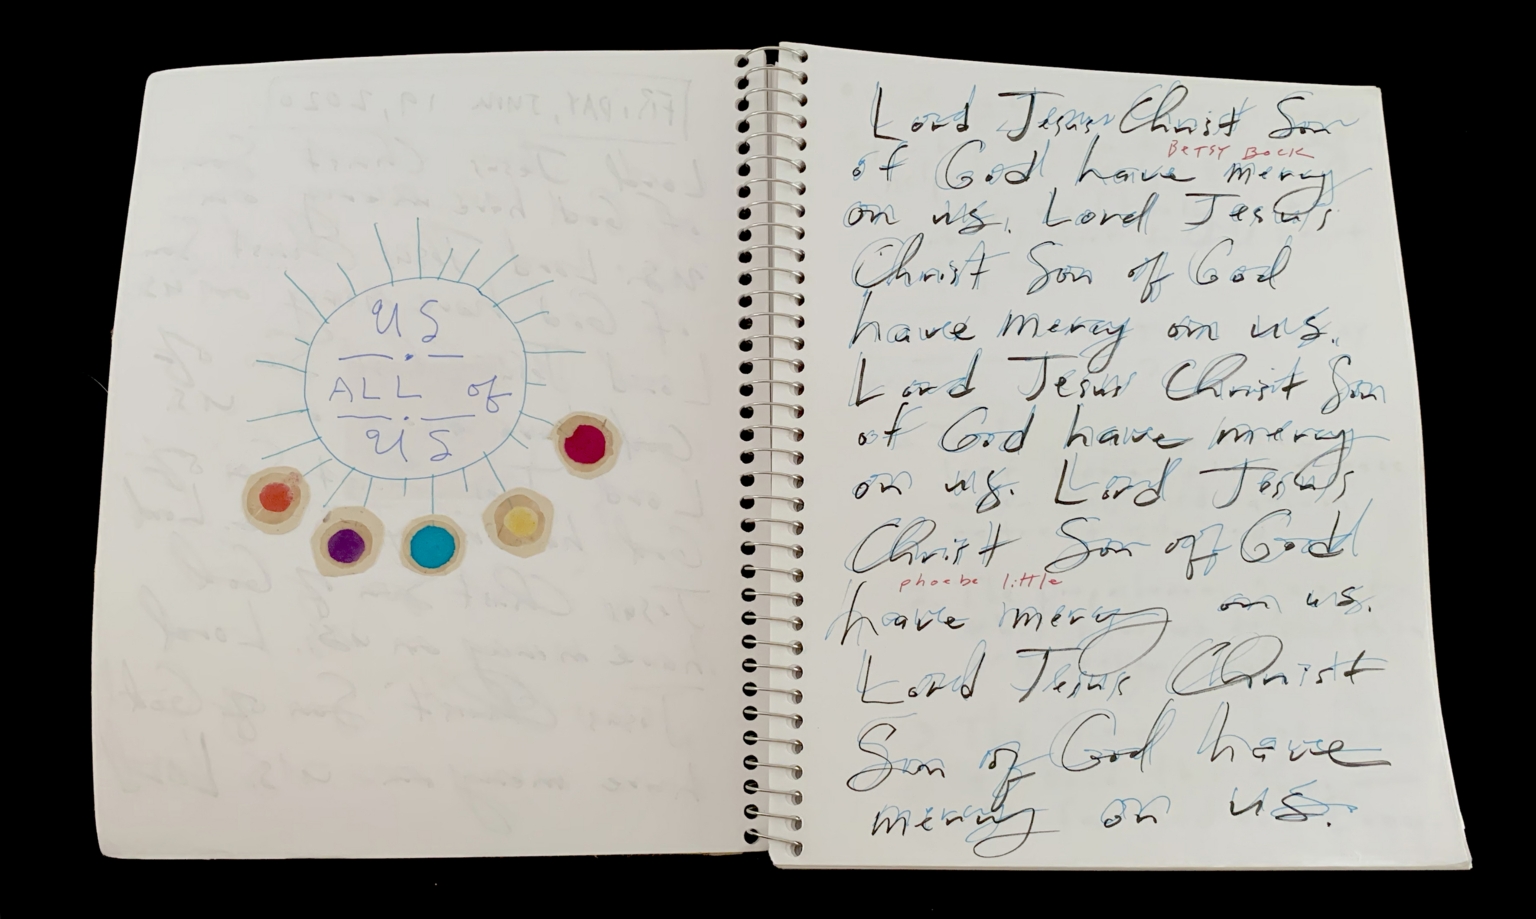 US
ALL of
US
Lord Jesus Christ Son
BETSY BOCK
of God have mercy
on us. Lord Jesus
Christ Son of God
have mercy on us.
Lord Jesus Christ Son
of God have mercy
on us. Lord Jesus
Christ Son of God
phoebe little
have mercy on us.
Lord Jesus Christ
Son of God have
mercy on us.